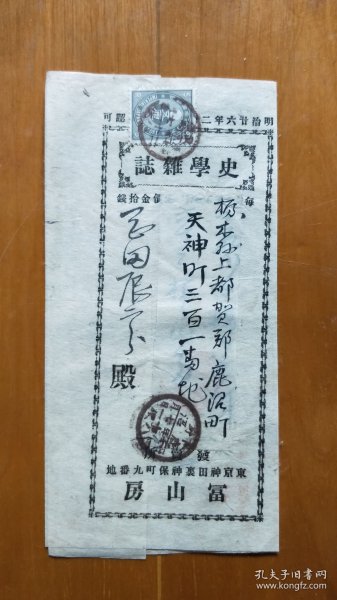 明治廿六年二
可
史學雜誌
毎
價金拾錢
栃木縣上都賀郡鹿沼町
天神町三百一番地
殿
發
東京神田裏神保町九番地
冨山房
孔夫子旧书网
www.kongfz.com